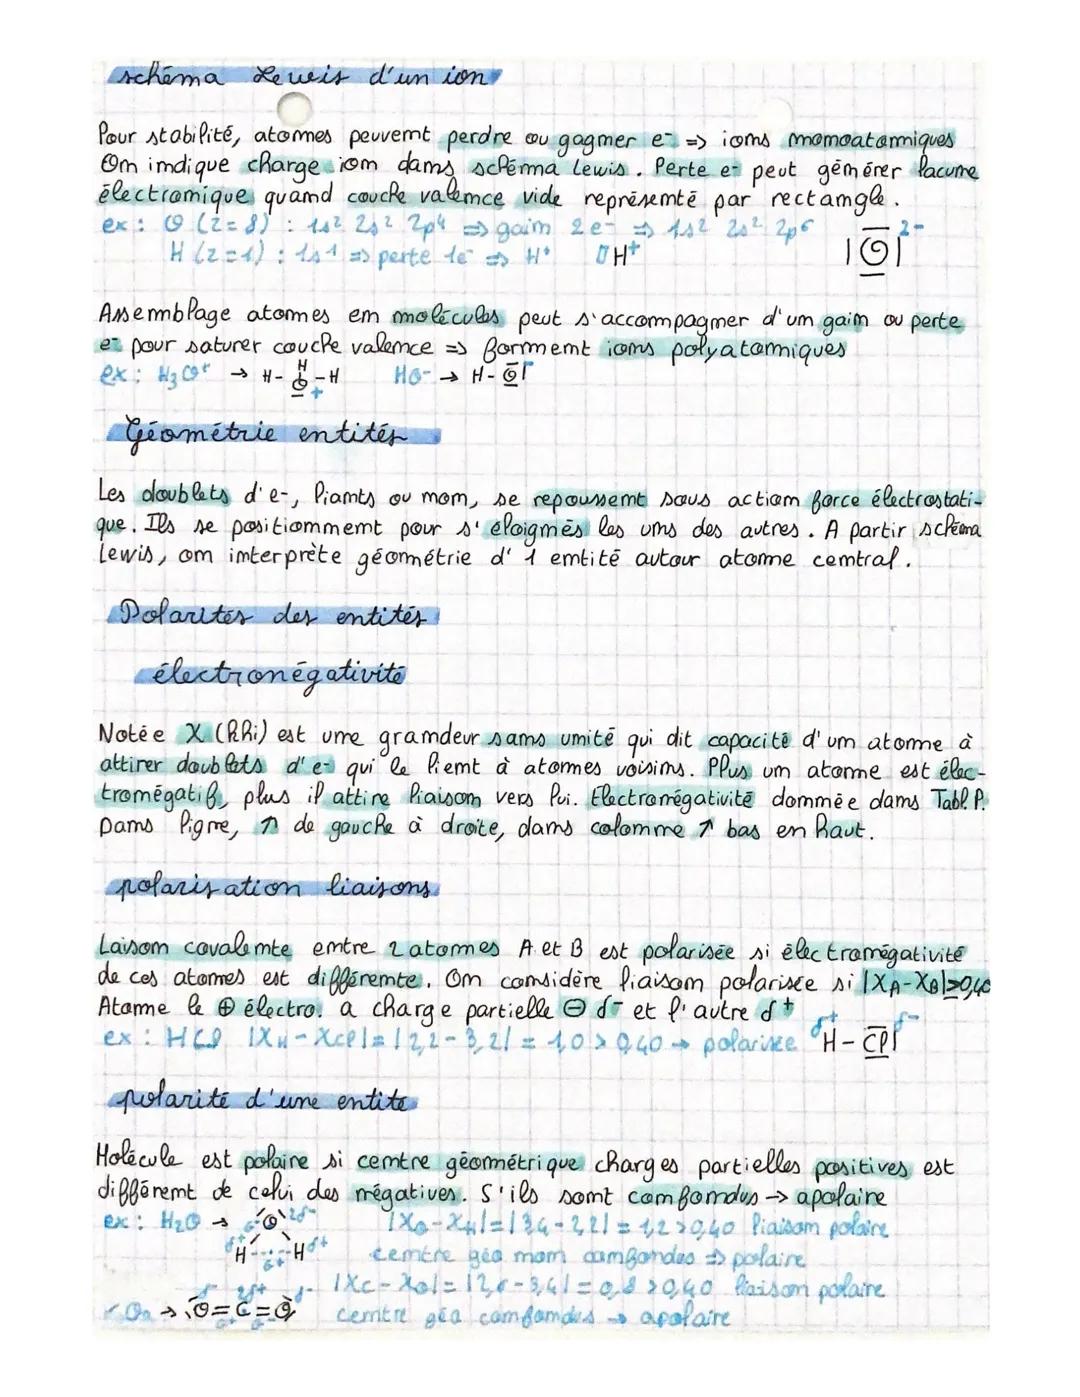 schéma Lewis d'un ion
Pour stabilité, atomes peuvent perdre ou gagner e⁻ => ions monoatomiques
On indique charge ion dans schéma Lewis. Perte e- peut générer lacune
électronique quand couche valence vide représenté par rectangle.
ex : O (Z=8) : 1s² 2s² 2p⁴ => gain 2e⁻ => 1s² 2s² 2p⁶ |O|²⁻
H (Z=1) : 1s1 => perte 1e⁻ => H⁺ ▯H⁺
Assemblage atomes en molécules peut s'accompagner d'un gain ou perte
e⁻ pour saturer couche valence => forment ions polyatomiques
ex : H₃O⁺ → H-O-H H + HO⁻ → H-O|⁻
Géométrie entités
Les doublets d'e-, liants ou non, se repoussent sous action force électrostati-
que. Ils se positionnent pour s'éloignés les uns des autres. A partir schéma
Lewis, on interprète géométrie d'1 entité autour atome central.
Polarités des entités
électronégativité
Notée X (Rhi) est une grandeur sans unité qui dit capacité d'un atome à
attirer doublets d'e- qui le lient à atomes voisins. Plus un atome est élec-
tronégatif, plus il attire liaison vers lui. Electronégativité donnée dans Tabl. P.
Dans ligne, ↗ de gauche à droite, dans colonne ↗ bas en haut.
polarisation liaisons
Laison covalente entre 2 atomes A et B est polarisée si électronégativité
de ces atomes est différente. On considère liaison polarisée si |XA-XB|≥0,40
Atome le ⊕ électro. a charge partielle ⊖ δ⁻ et l'autre δ⁺
ex : HCl |XH-XCl|=|2,2-3,2| = 1,0 > 0,40 → polarisée δ⁺H-Cl|δ⁻
polarité d'une entité
Molécule est polaire si centre géométrique charges partielles positives est
différent de celui des négatives. S'ils sont confondus → apolaire
ex : H₂O → O 2δ⁻ |XO-XH|=|3,4-2,2|=1,2>0,40 liaison polaire
δ⁺H H δ⁺ centre géo non confondus => polaire
δ⁻ 2δ⁺ δ⁻ |XC-XO|=|2,6-3,4|=0,8>0,40 liaison polaire
CO₂ → O=C=O centre géo confondus → apolaire